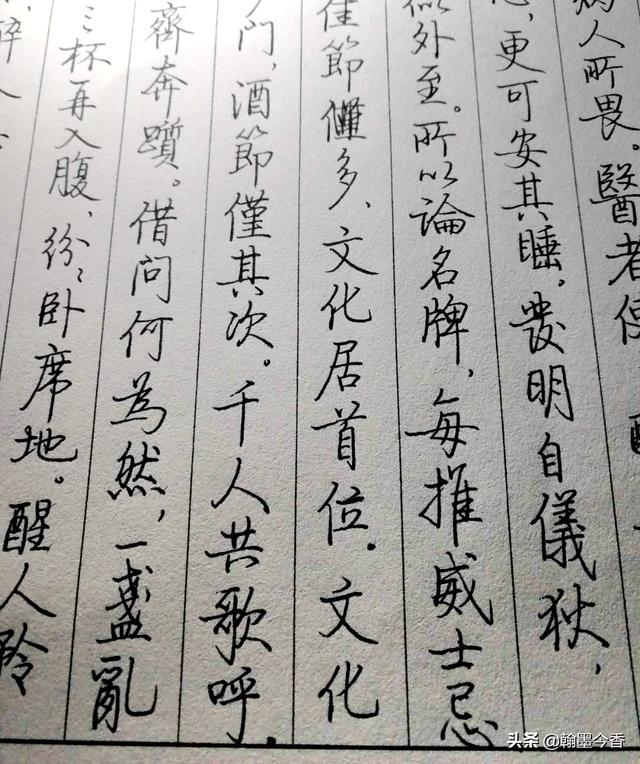 人所畏。醫者
更可安其睡，發明自儀狄，
外至。所以論名牌，每推威士忌
佳節多、文化居首位。文化
門，酒節僅其次。千人共歌呼，
齊奔躓。借問何為然，一盞亂
三杯再入腹、紛〻卧席地。醒人聆
头条 @翰墨今香